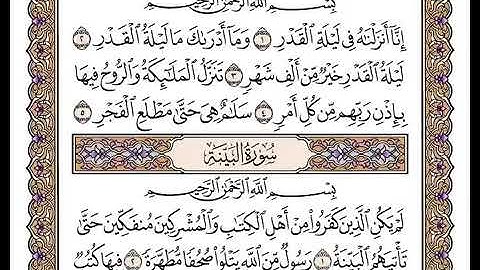 بِسْمِ ٱللَّهِ ٱلرَّحْمَٰنِ ٱلرَّحِيمِ
إِنَّآ أَنزَلْنَٰهُ فِى لَيْلَةِ ٱلْقَدْرِ ١ وَمَآ أَدْرَىٰكَ مَا لَيْلَةُ ٱلْقَدْرِ ٢
لَيْلَةُ ٱلْقَدْرِ خَيْرٌ مِّنْ أَلْفِ شَهْرٍ ٣ تَنَزَّلُ ٱلْمَلَٰٓئِكَةُ وَٱلرُّوحُ فِيهَا
بِإِذْنِ رَبِّهِم مِّن كُلِّ أَمْرٍ ٤ سَلَٰمٌ هِىَ حَتَّىٰ مَطْلَعِ ٱلْفَجْرِ ٥
سُورَةُ الْبَيِّنَةِ
بِسْمِ ٱللَّهِ ٱلرَّحْمَٰنِ ٱلرَّحِيمِ
لَمْ يَكُنِ ٱلَّذِينَ كَفَرُوا۟ مِنْ أَهْلِ ٱلْكِتَٰبِ وَٱلْمُشْرِكِينَ مُنفَكِّينَ حَتَّىٰ
تَأْتِيَهُمُ ٱلْبَيِّنَةُ ١ رَسُولٌ مِّنَ ٱللَّهِ يَتْلُوا۟ صُحُفًا مُّطَهَّرَةً ٢ فِيهَا كُتُبٌ